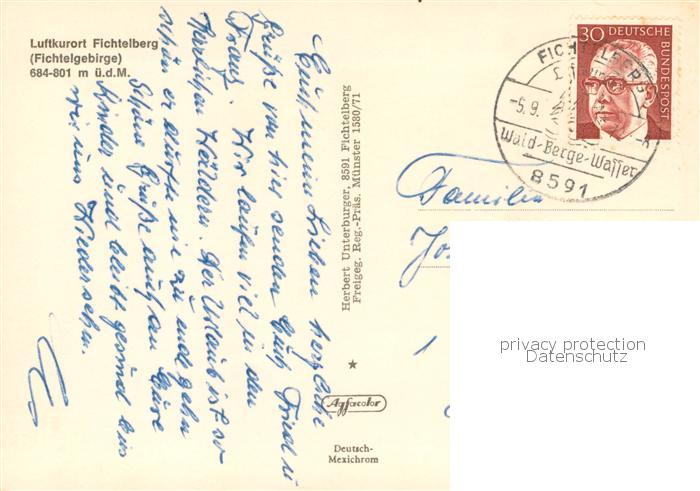 Luftkurort Fichtelberg
(Fichtelgebirge)
684-801 m ü.d.M.
Euch meine Lieben herzliche
Grüße von hier senden Euch Friedl u
Franz. Wir laufen viel in den
herrlichen Wäldern. Der Urlaub ist so
schön er dürfte nie zu Ende gehn
Schöne Grüße auch an Eure
Kinder und bleibt gesund bis
wir uns Wiedersehn.
Herbert Unterburger, 8591 Fichtelberg
Freigeg. Reg.-Präs. Münster 1580/71
Agfacolor
Deutsch-
Mexichrom
30 DEUTSCHE
BUNDESPOST
FICHTELBERG
-5.9.
Wald-Berge-Wasser
8591
Familie
privacy protection
Datenschutz